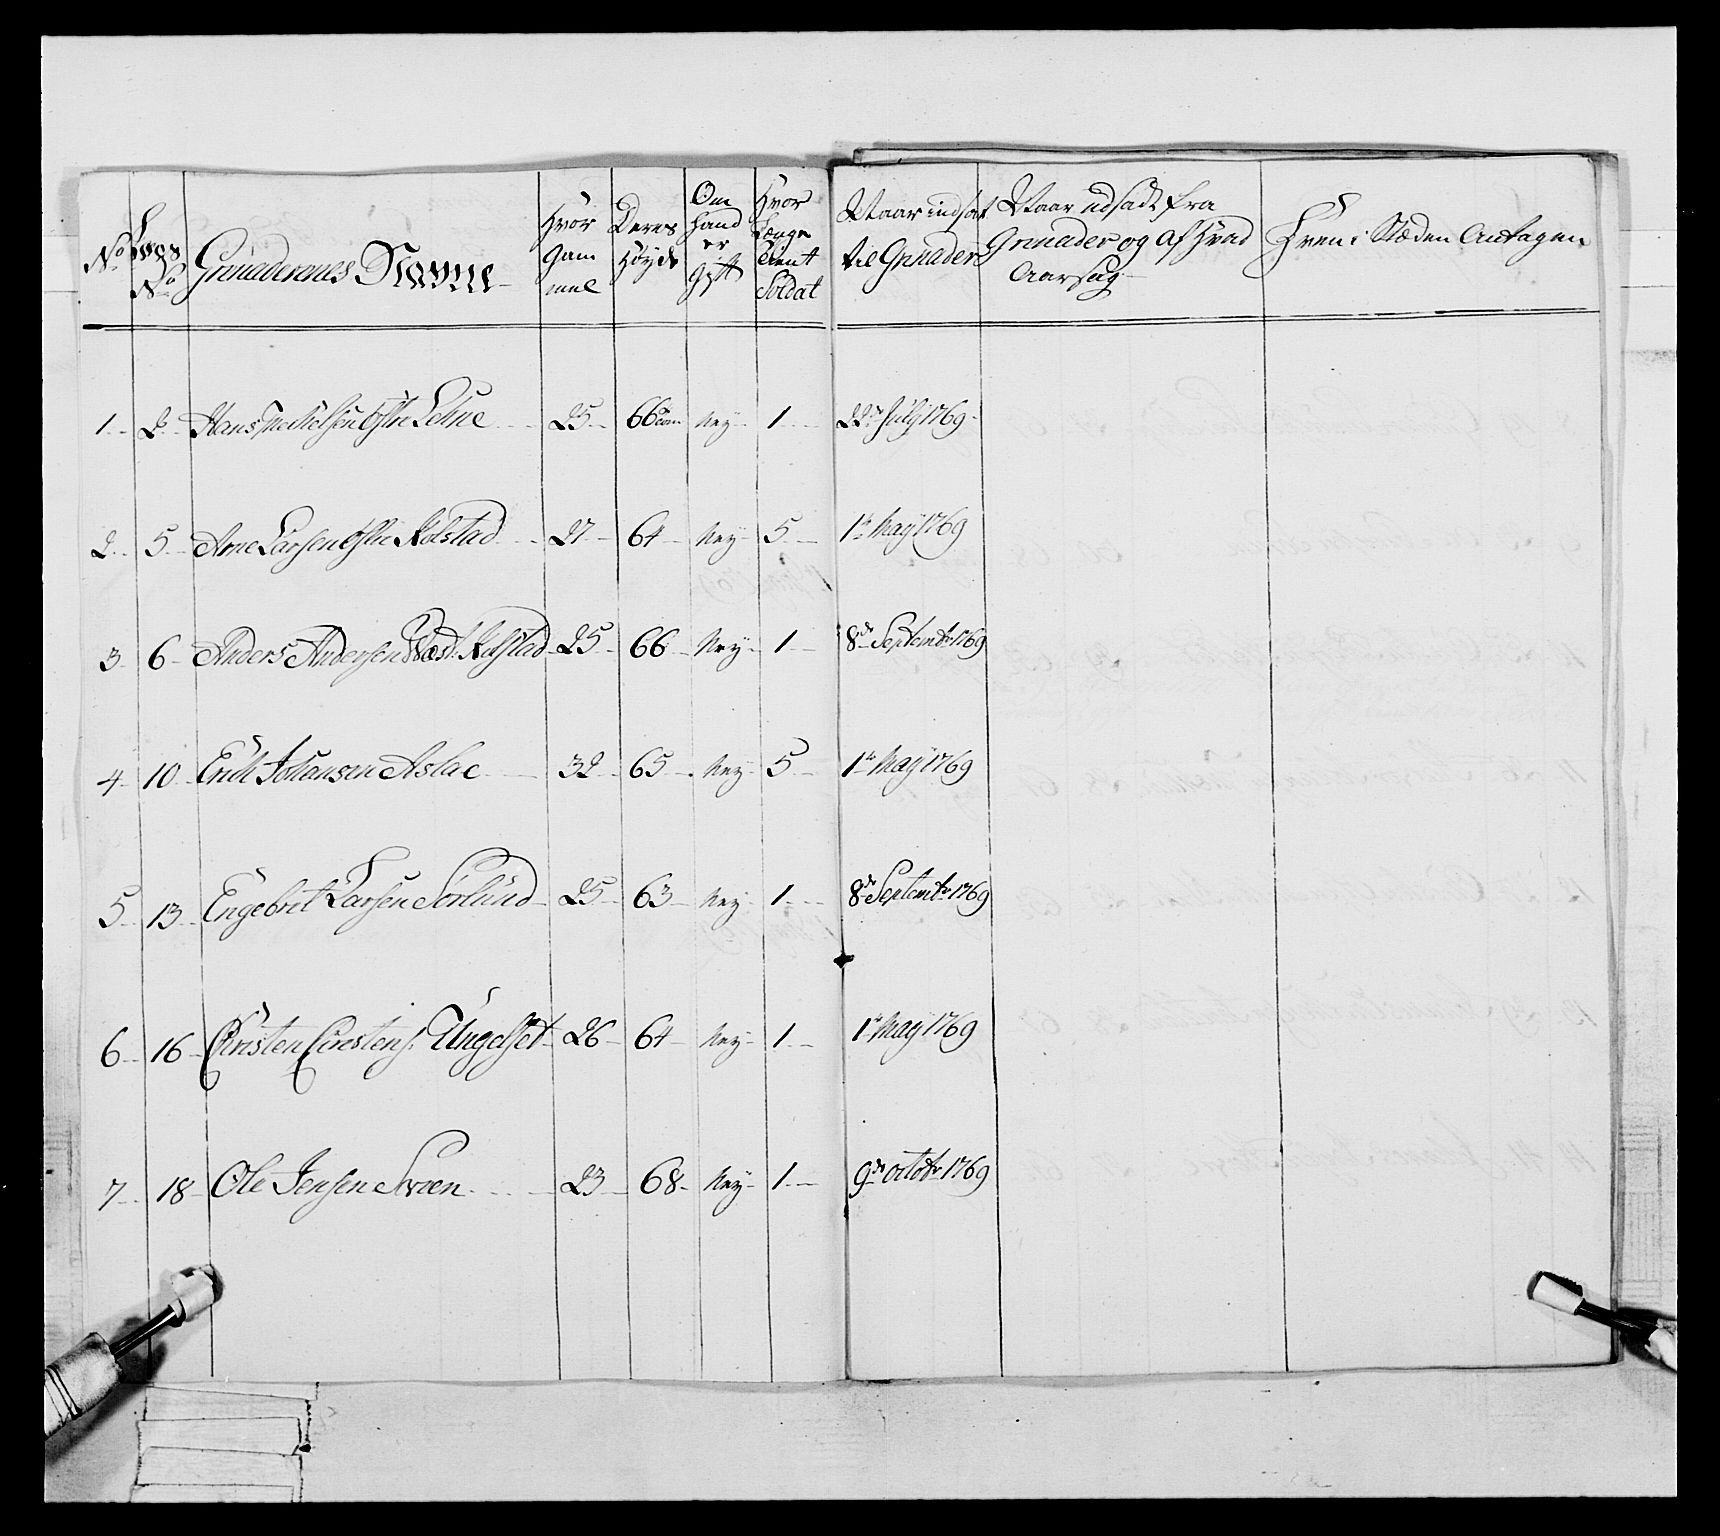 No Lægs No Grenaderernes Navne Hvor Gammel Deres Høyde Om hand er gift Hvor Længe Tient Soldat Naar indsat til Grenader Naar udsadt fra Grenader og af hvad Aarsag Hven i Stæden Antagen
1 2 Hans Michelsen Østre Lehne 25 66 Ney 1 22de July 1769
2 5 Arne Larsen Østre Kolstad 27 64 Ney 5 1te May 1769
3 6 Anders Andersen Væst: Kolstad 25 66 Ney 1 8de Septembr 1769
4 10 Erich Johansen Aslac 32 65 Ney 5 1te May 1769
5 13 Engebret Larsen Sørlund 25 63 Ney 1 8de Septembr 1769
6 16 Christen Cirestens: Ungelset 26 64 Ney 1 1te May 1769
7 18 Ole Jensen Svæen 23 68 Ney 1 9de octobr 1769